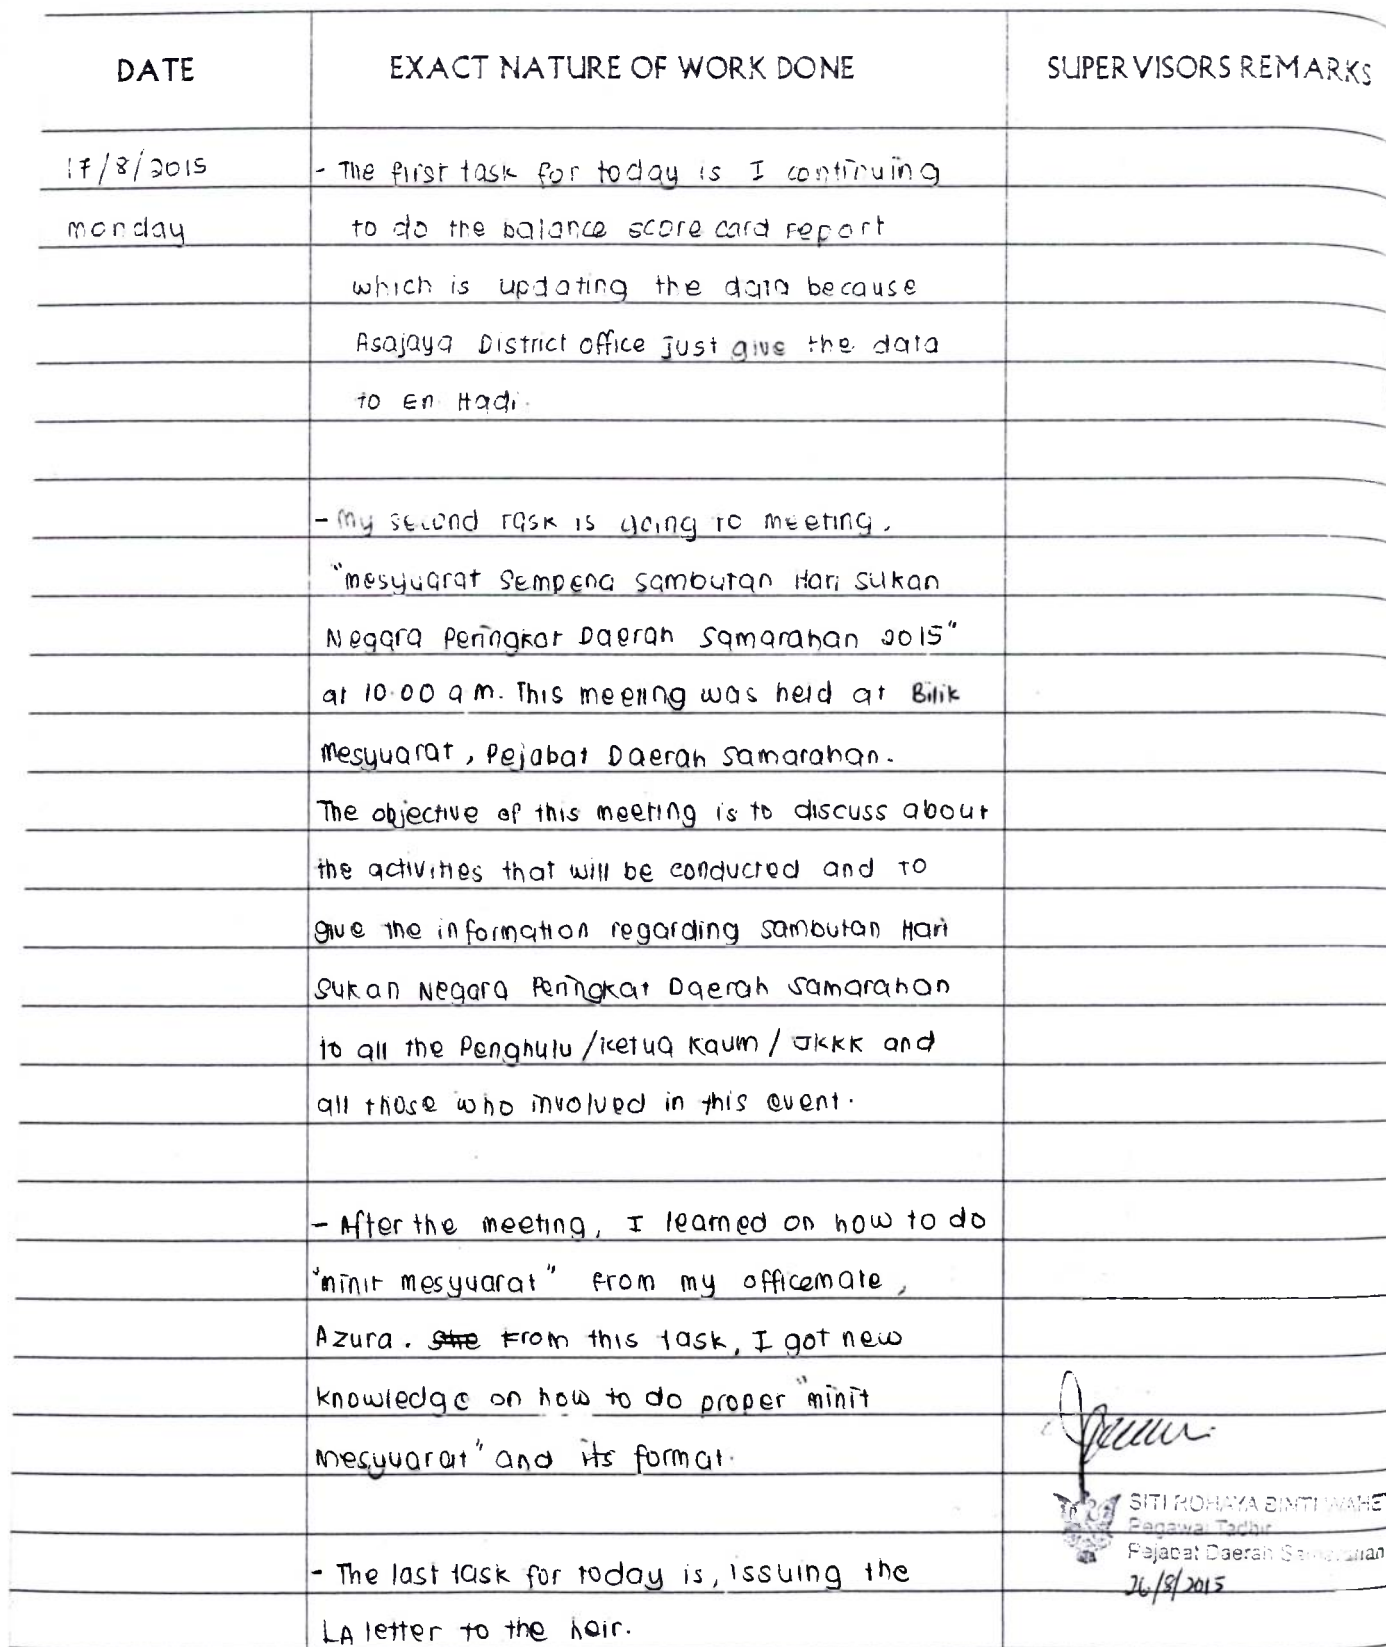 DATE EXACT NATURE OF WORK DONE SUPERVISORS REMARKS
17/8/2015 - The first task for today is I continuing
monday to do the balance score card report
which is updating the data because
Asajaya District office just give the data
to En Hadi.
- My second task is going to meeting,
"mesyuarat Sempena Sambutan Hari Sukan
Negara Peringkat Daerah Samarahan 2015"
at 10.00 a m. This meeting was held at Bilik
Mesyuarat, Pejabat Daerah Samarahan.
The objective of this meeting is to discuss about
the activities that will be conducted and to
give the information regarding Sambutan Hari
Sukan Negara Peringkat Daerah Samarahan
to all the Penghulu / Ketua Kaum / JKKK and
all those who involved in this event.
- After the meeting, I learned on how to do
"minit mesyuarat" from my officemate,
Azura. She From this task, I got new
knowledge on how to do proper "minit
mesyuarat" and its format.
SITI ROHAYA BINTI WAHE
Pegawai Tadbir
Pejabat Daerah Samarahan
- The last task for today is, issuing the
26/8/2015
LA letter to the heir.